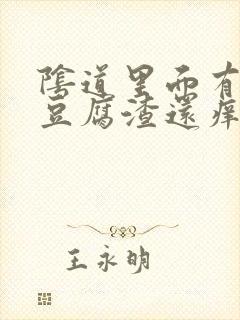 陰道里面有
豆腐渣還痒
王永明